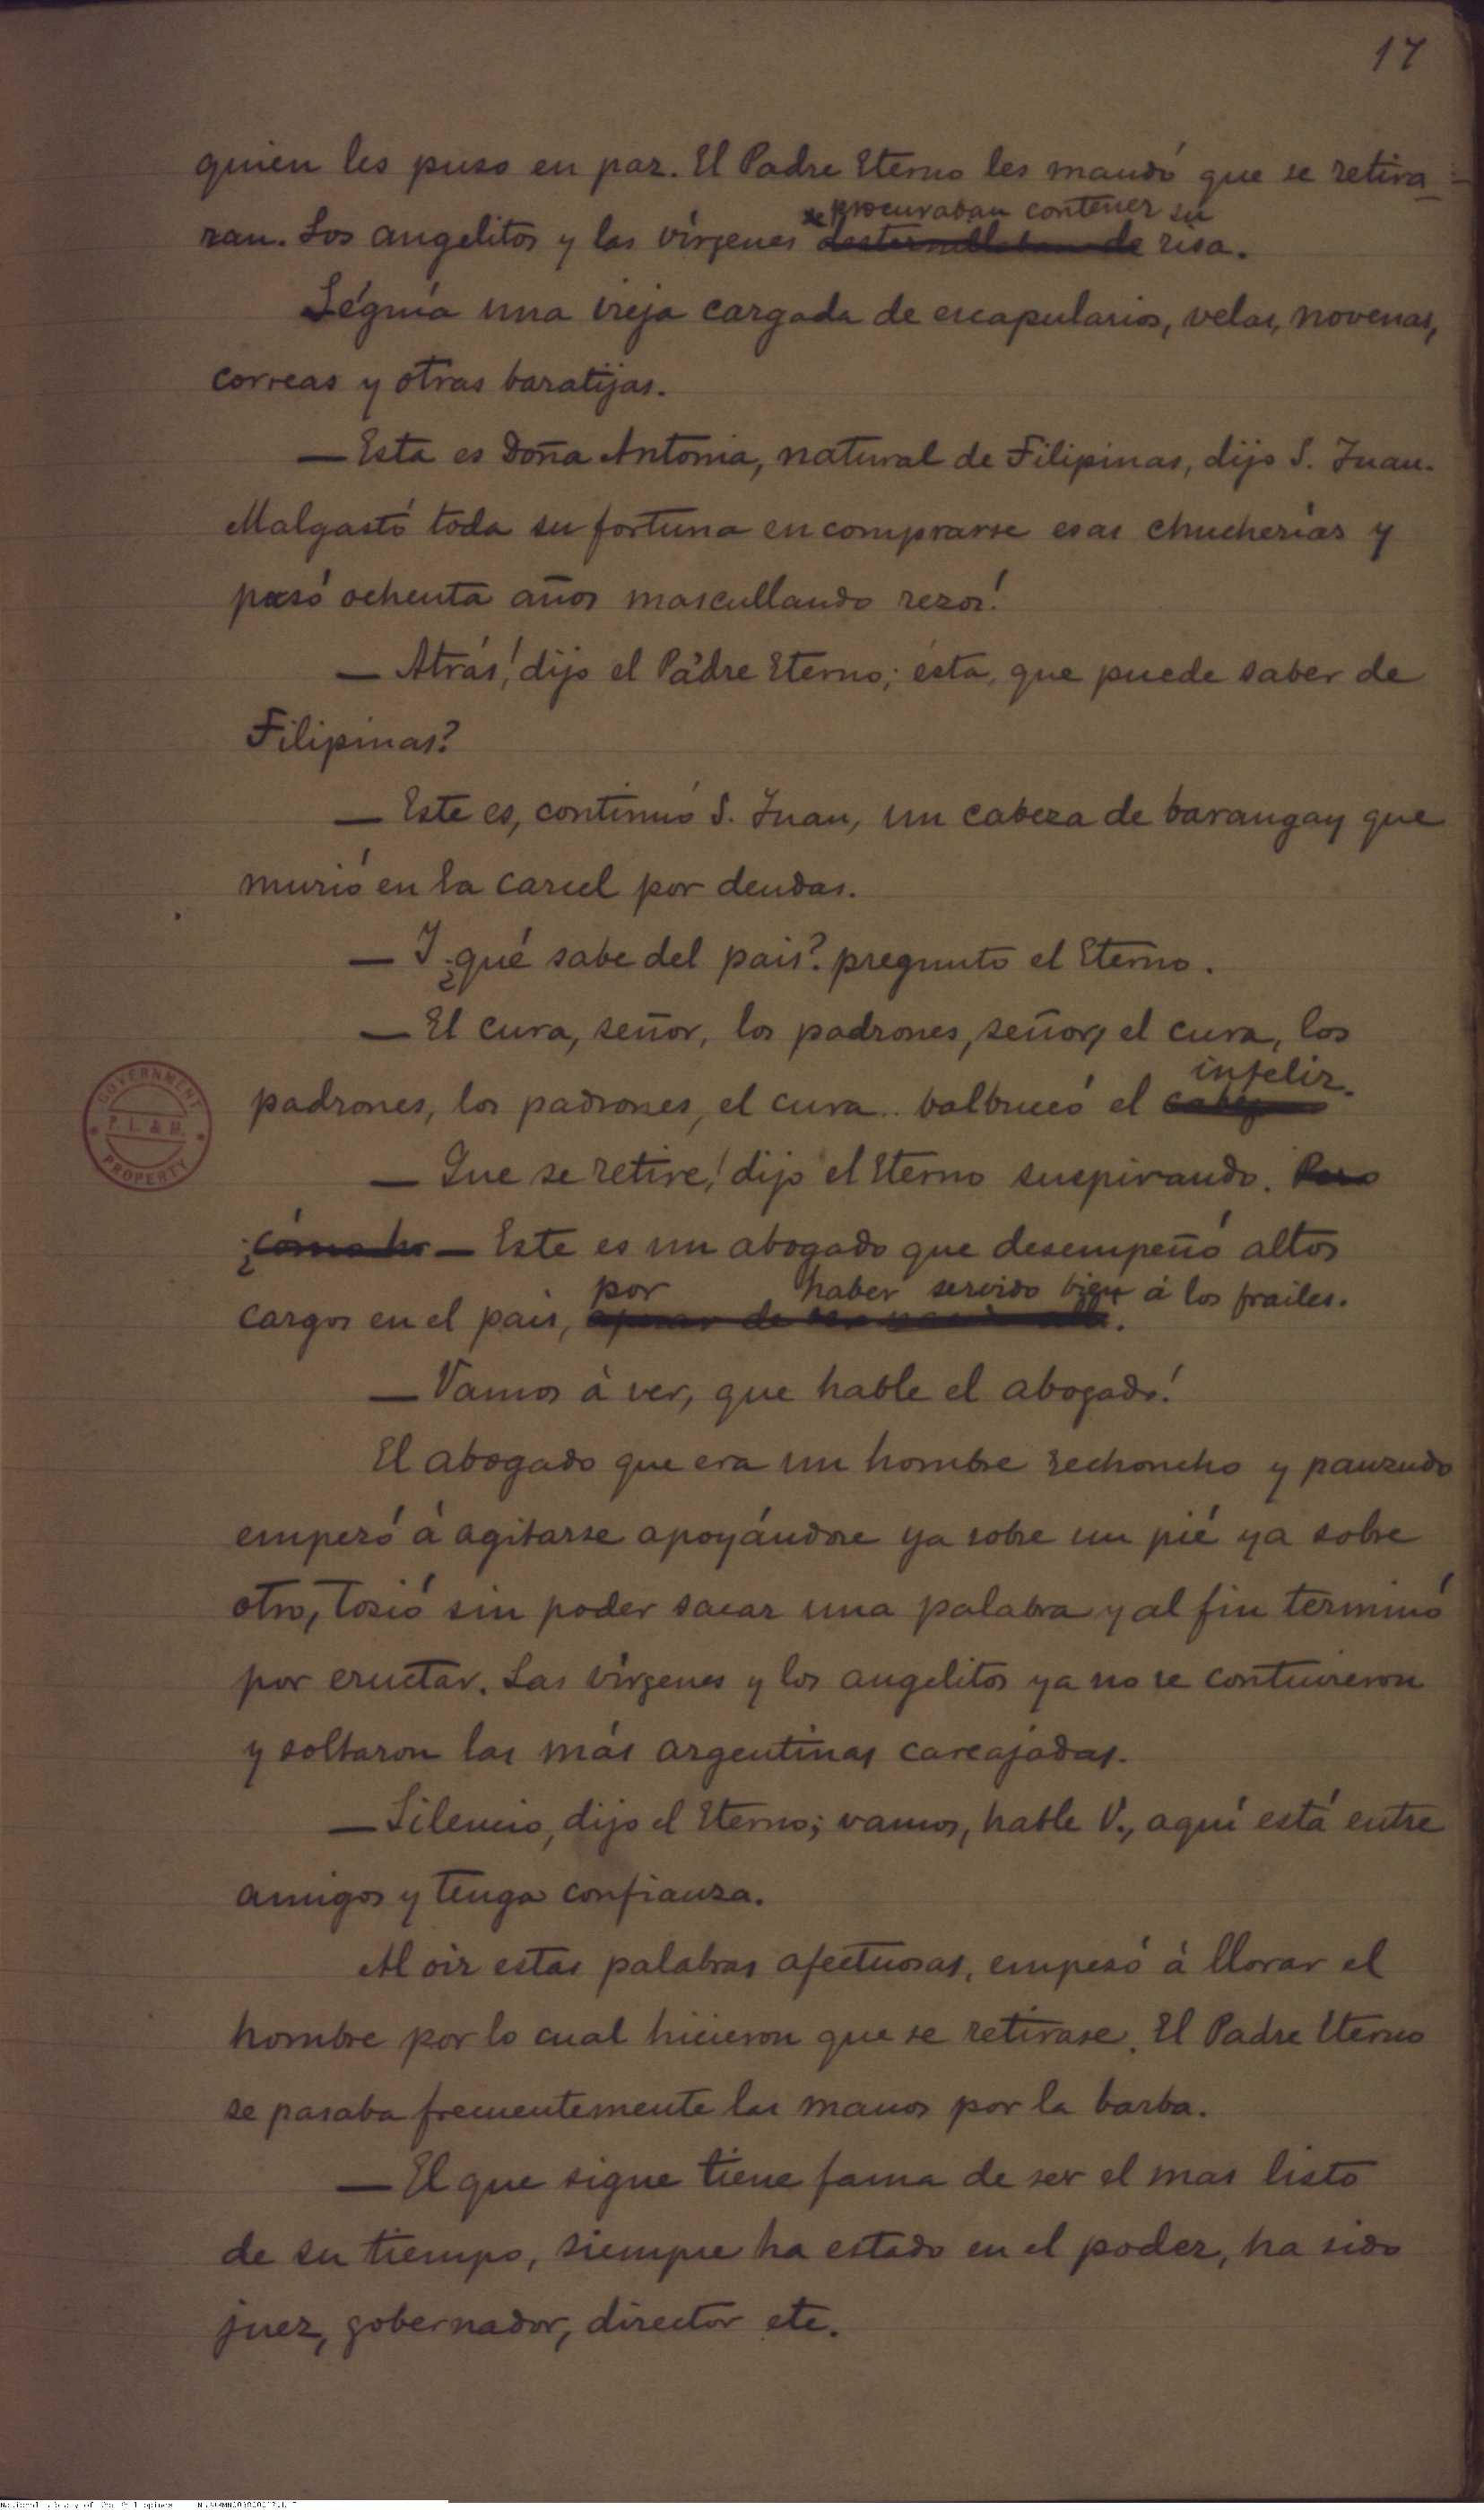 17
quien les puso en paz. El Padre Eterno les mandó que se retira-
ran. Los angelitos y las vírgenes procuraban contener su risa.
Seguía una vieja cargada de escapularios, velas, novenas,
correas y otras baratijas.
— Esta es Doña Antonia, natural de Filipinas, dijo S. Juan.
Malgastó toda su fortuna en comprarse esas chucherías y
pasó ochenta años mascullando rezos!
— Atrás! dijo el Padre Eterno; ésta, que puede saber de
Filipinas?
— Este es, continuó S. Juan, un cabeza de barangay que
murió en la carcel por deudas.
— I ¿qué sabe del pais? pregunto el Eterno.
— El cura, señor, los padrones, señor, el cura, los
padrones, los padrones, el cura.. balbuceó el infeliz.
— Que se retire! dijo el Eterno suspirando. Pero
¿cómo ha — Este es un abogado que desempeñó altos
cargos en el pais, por haber servido bien á los frailes.
— Vamos á ver, que hable el abogado!
El abogado que era un hombre rechoncho y panzudo
empezó á agitarse apoyándose ya sobre un pié ya sobre
otro, tosió sin poder sacar una palabra y al fin terminó
por eructar. Las vírgenes y los angelitos ya no se contuvieron
y soltaron las más argentinas carcajadas.
— Silencio, dijo el Eterno; vamos, hable V., aquí está entre
amigos y tenga confianza.
Al oir estas palabras afectuosas, empezó á llorar el
hombre por lo cual hicieron que se retirase. El Padre Eterno
se pasaba frecuentemente las manos por la barba.
— El que sigue tiene fama de ser el mas listo
de su tiempo, siempre ha estado en el poder, ha sido
juez, gobernador, director etc.
GOVERNMENT
P. L. & M.
PROPERTY
National Library of the Philippines